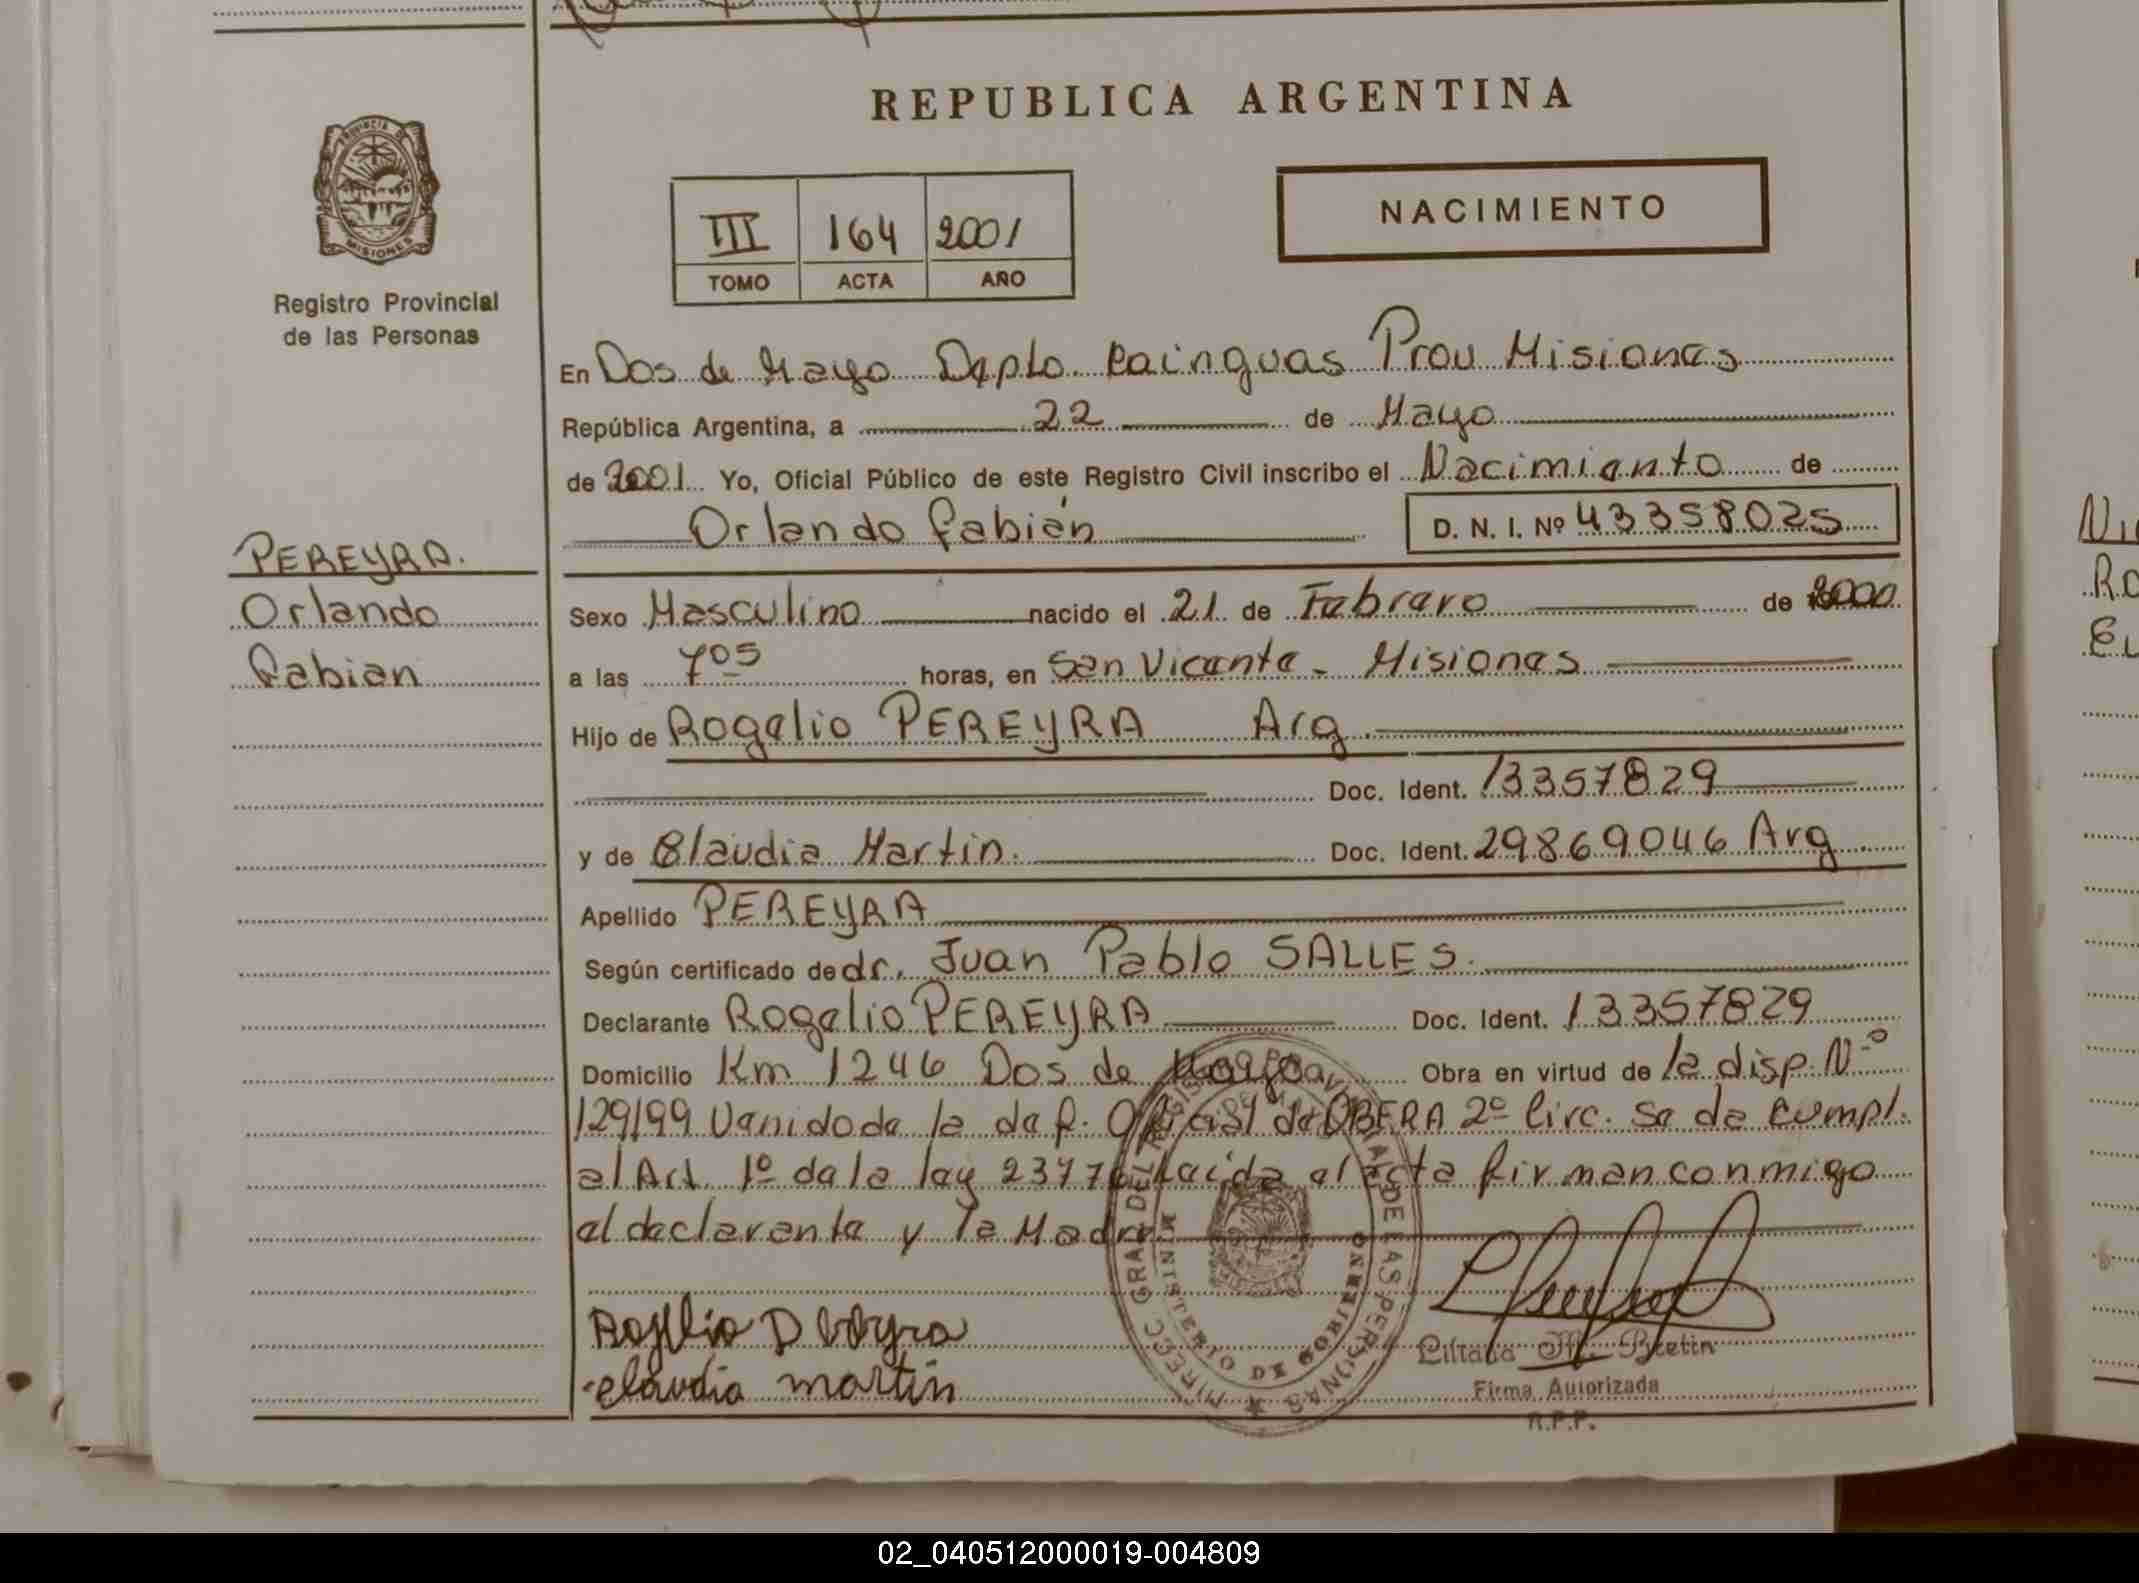 REPUBLICA ARGENTINA
PROVINCIA DE
MISIONES
Registro Provincial
de las Personas
III 164 2001
TOMO ACTA AÑO
NACIMIENTO
En Dos de Mayo Depto. Cainguas Prov Misiones
República Argentina, a 22 de Mayo
de 2001 Yo, Oficial Público de este Registro Civil inscribo el Nacimiento de
Orlando Fabián D. N. I. Nº 43358025
PEREYRA.
Orlando
Fabian
Sexo Masculino nacido el 21 de Febrero de 2000
a las 7 05 horas, en San Vicente - Misiones
Hijo de Rogelio PEREYRA Arg.
Doc. Ident. 13357829
y de Claudia Martin. Doc. Ident. 29869046 Arg
Apellido PEREYRA
Según certificado de dr. Juan Pablo SALLES.
Declarante Rogelio PEREYRA Doc. Ident. 13357829
Domicilio Km 1246 Dos de Mayo Obra en virtud de la disp. Nº
129/99 Venido de la def. Oficial de OBERA 2º Circ. Se da cumpl.
al Art. 1º de la ley 23776 Leida el acta firman conmigo
el declarante y la Madre
Claudia martin
Liliana M. Bretin
Firma Autorizada
R.P.P.
MINISTERIO DE GOBIERNO
02_040512000019-004809